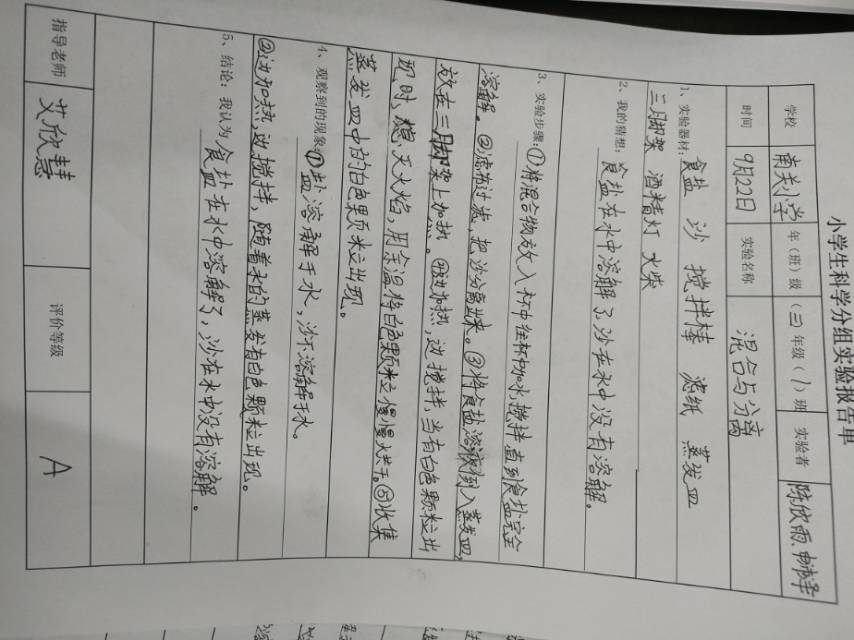 小学生科学分组实验报告单
学校 南关小学 年（班）级 （三）年级（1）班 实验者 陈欣雨
时间 9月22日 实验名称 混合与分离
1、实验器材：食盐 沙 搅拌棒 滤纸 蒸发皿
三脚架 酒精灯 火柴
2、我的猜想：食盐在水中溶解了,沙在水中没有溶解。
3、实验步骤：①将混合物放入杯中往杯中加水,搅拌直到食盐完全
溶解。②滤布过滤,把沙分离出来。③将食盐溶液倒入蒸发皿,
放在三脚架上加热。④边加热,边搅拌,当有白色颗粒出
现时,熄灭火焰,用余温将白色颗粒慢慢烘干。⑤收集
蒸发皿中的白色颗粒出现。
4、观察到的现象：①盐溶解于水,沙不溶解于水。
②边加热,边搅拌,随着水的蒸发有白色颗粒出现。
5、结论：我认为食盐在水中溶解了,沙在水中没有溶解。
指导老师 艾欣慧 评价等级 A